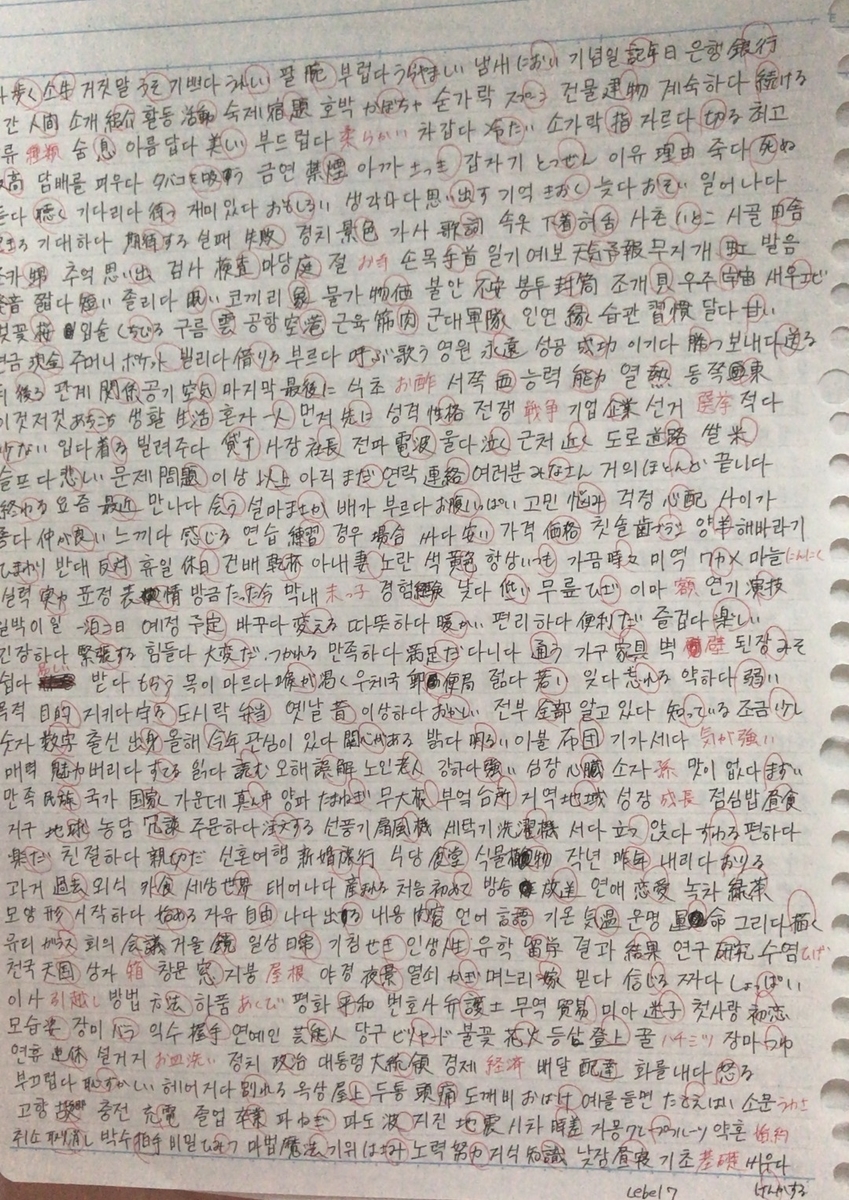 歩く 소년 거짓말 うそ 기쁘다 うれしい 팔 腕 부럽다 うらやましい 냄새 におい 기념일 記年日 은행 銀行
간 人間 소개 紹介 활동 活動 숙제 宿題 호박 かぼちゃ 숟가락 スプーン 건물 建物 계속하다 続ける
류 種類 숨 息 아름답다 美しい 부드럽다 柔らかい 차갑다 冷たい 소가락 指 자르다 切る 최고
最高 담배를 피우다 タバコを吸う 금연 禁煙 아까 さっき 갑자기 とつぜん 이유 理由 죽다 死ぬ
듣다 聴く 기다리다 待つ 재미있다 おもしろい 생각나다 思い出す 기억 きおく 늦다 おそい 일어나다
起きる 기대하다 期待する 실패 失敗 경치 景色 가사 歌詞 속옷 下着 허숨 사촌 いとこ 시골 田舎
조카 甥 추억 思い出 검사 検査 마당 庭 절 お寺 손목 手首 일기예보 天気予報 무지개 虹 발음
発音 짧다 短い 졸리다 眠い 코끼리 象 물가 物価 불안 不安 봉투 封筒 조개 貝 우주 宇宙 새우 エビ
벚꽃 桜 입술 くちびる 구름 雲 공항 空港 근육 筋肉 군대 軍隊 인연 縁 습관 習慣 달다 甘い
현금 現金 주머니 ポケット 빌리다 借りる 부르다 呼ぶ歌う 영원 永遠 성공 成功 이기다 勝つ 보내다 送る
뒤 後ろ 관계 関係 공기 空気 마지막 最後に 식초 お酢 서쪽 西 능력 能力 열 熱 동쪽 東
이것저것 あちこち 생활 生活 혼자 一人 먼저 先に 성격 性格 전쟁 戦争 기업 企業 선거 選挙 적다
少ない 입다 着る 빌려주다 貸す 사장 社長 전파 電波 울다 泣く 근처 近く 도로 道路 쌀 米
슬프다 悲しい 문제 問題 이상 以上 아직 まだ 연락 連絡 여러분 みなさん 거의 ほとんど 끝나다
終わる 요즘 最近 만나다 会う 설마 まさか 배가 부르다 お腹いっぱい 고민 悩み 걱정 心配 사이가
좋다 仲が良い 느끼다 感じる 연습 練習 경우 場合 싸다 安い 가격 価格 칫솔 歯ブラシ 양 羊 해바라기
ひまわり 반대 反対 휴일 休日 건배 乾杯 아내 妻 노란 색 黄色 항상 いつも 가끔 時々 미역 ワカメ 마늘 にんにく
실력 実力 표정 表情 방금 たった今 막내 末っ子 경험 経験 낮다 低い 무릎 ひざ 이마 額 연기 演技
일박이일 一泊二日 예정 予定 바꾸다 変える 따뜻하다 暖かい 편리하다 便利だ 즐겁다 楽しい
긴장하다 緊張する 힘들다 大変だ・つかれる 만족하다 満足だ 다니다 通う 가구 家具 벽 壁 된장 みそ
쉽다 易しい 받다 もらう 목이 마르다 喉が渇く 우체국 郵便局 젊다 若い 잊다 忘れる 약하다 弱い
목적 目的 지키다 守る 도시락 弁当 옛날 昔 이상하다 おかしい 전부 全部 알고 있다 知っている 조금 少し
숫자 数字 출신 出身 올해 今年 관심이 있다 関心がある 밝다 明るい 이불 布団 기가 세다 気が強い
매력 魅力 버리다 すてる 읽다 読む 오해 誤解 노인 老人 강하다 強い 심장 心臓 소자 孫 맛이 없다 まずい
민족 民族 국가 国家 가운데 真ん中 양파 たまねぎ 무 大根 부엌 台所 지역 地域 성장 成長 점심밥 昼食
지구 地球 농담 冗談 주문하다 注文する 선풍기 扇風機 세탁기 洗濯機 서다 立つ 앉다 すわる 편하다
楽だ 친절하다 親切だ 신혼여행 新婚旅行 식당 食堂 식물 植物 작년 昨年 내리다 おりる
과거 過去 외식 外食 세상 世界 태어나다 産まれる 처음 初めて 방송 放送 연애 恋愛 녹차 緑茶
모양 形 시작하다 始める 자유 自由 나다 出る 내용 内容 언어 言語 기온 気温 운명 運命 그리다 描く
유리 ガラス 회의 会議 거울 鏡 일상 日常 기침 せき 인생 人生 유학 留学 결과 結果 연구 研究 수염 ひげ
천국 天国 상자 箱 창문 窓 지붕 屋根 야경 夜景 열쇠 かぎ 며느리 嫁 믿다 信じる 짜다 しょっぱい
이사 引越し 방법 方法 하품 あくび 평화 平和 변호사 弁護士 무역 貿易 미아 迷子 첫사랑 初恋
모습 姿 장미 バラ 악수 握手 연예인 芸能人 당구 ビリヤード 불꽃 花火 등산 登山 꿀 ハチミツ 장마 つゆ
연휴 連休 설거지 お皿洗い 정치 政治 대통령 大統領 경제 経済 배달 配達 화를 내다 怒る
부끄럽다 恥ずかしい 헤어지다 別れる 옥상 屋上 두통 頭痛 도깨비 おばけ 예를 들면 たとえば 소문 うわさ
고향 故郷 충전 充電 졸업 卒業 파 ねぎ 파도 波 지진 地震 시차 時差 자몽 グレープフルーツ 약혼 婚約
취소 取り消し 박수 拍手 비밀 ひみつ 마법 魔法 가위 はさみ 노력 努力 지식 知識 낮잠 昼寝 기초 基礎 싸우다
Lebel 7 けんかする